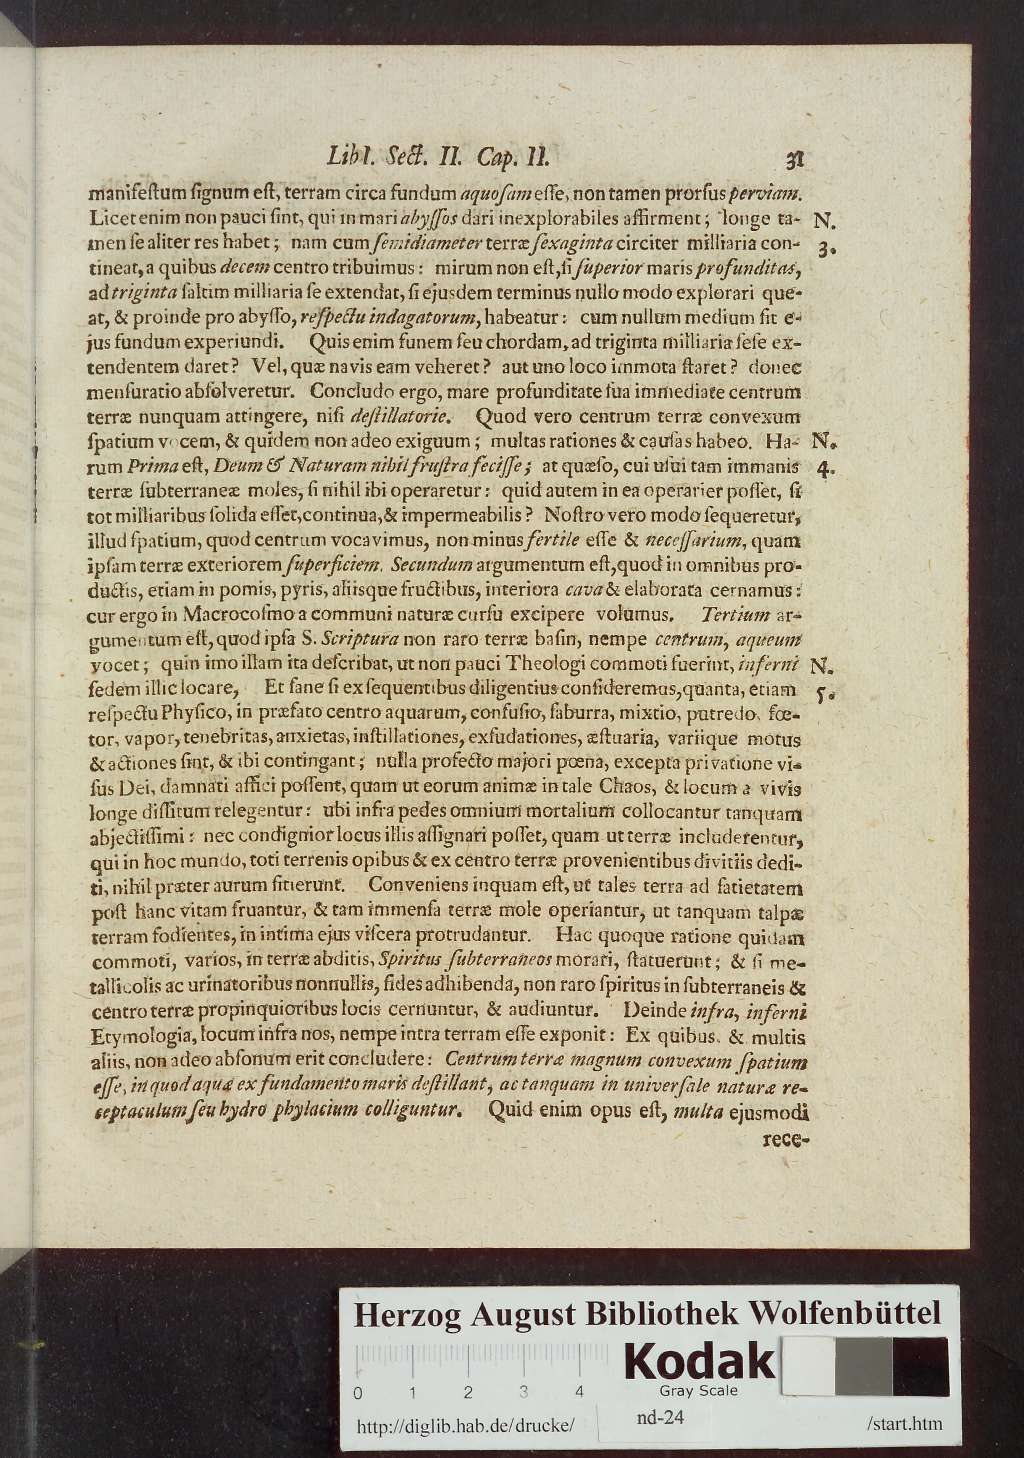 Lib I. Sect. II. Cap. II. 31
manifeſtum ſignum eſt, terram circa fundum aquoſam eſſe, non tamen prorſus perviam.
Licet enim non pauci ſint, qui in mari abyſſos dari inexplorabiles affirment; longe ta- N.
men ſe aliter res habet; nam cum ſemidiameter terræ ſexaginta circiter milliaria con- 3.
tineat, a quibus decem centro tribuimus: mirum non eſt, ſi ſuperior maris profunditas,
ad triginta ſaltim milliaria ſe extendat, ſi ejusdem terminus nullo modo explorari que-
at, & proinde pro abyſſo, reſpectu indagatorum, habeatur: cum nullum medium ſit e-
jus fundum experiundi. Quis enim funem ſeu chordam, ad triginta milliaria ſeſe ex-
tendentem daret? Vel, quæ navis eam veheret? aut uno loco immota ſtaret? donec
menſuratio abſolveretur. Concludo ergo, mare profunditate ſua immediate centrum
terræ nunquam attingere, niſi deſtillatorie. Quod vero centrum terræ convexum
ſpatium vocem, & quidem non adeo exiguum; multas rationes & cauſas habeo. Ha- N.
rum Prima eſt, Deum & Naturam nihil fruſtra feciſſe; at quæſo, cui uſui tam immanis 4.
terræ ſubterraneæ moles, ſi nihil ibi operaretur: quid autem in ea operarier poſſet, ſi
tot milliaribus ſolida eſſet, continua, & impermeabilis? Noſtro vero modo ſequeretur,
illud ſpatium, quod centrum vocavimus, non minus fertile eſſe & neceſſarium, quam
ipſam terræ exteriorem ſuperficiem. Secundum argumentum eſt, quod in omnibus pro-
ductis, etiam in pomis, pyris, aliisque fructibus, interiora cava & elaborata cernamus:
cur ergo in Macrocoſmo a communi naturæ curſu excipere volumus. Tertium ar-
gumentum eſt, quod ipſa S. Scriptura non raro terræ baſin, nempe centrum, aqueum
vocet; quin imo illam ita deſcribat, ut non pauci Theologi commoti fuerint, inferni N.
ſedem illic locare, Et ſane ſi ex ſequentibus diligentius conſideremus, quanta, etiam 5.
reſpectu Phyſico, in præfato centro aquarum, confuſio, ſaburra, mixtio, putredo, fœ-
tor, vapor, tenebritas, anxietas, inſtillationes, exſudationes, æſtuaria, variique motus
& actiones ſint, & ibi contingant; nulla profecto majori pœna, excepta privatione vi-
ſus Dei, damnati affici poſſent, quam ut eorum animæ in tale Chaos, & locum a vivis
longe diſſitum relegentur: ubi infra pedes omnium mortalium collocantur tanquam
abjectiſſimi: nec condignior locus illis aſſignari poſſet, quam ut terræ includerentur,
qui in hoc mundo, toti terrenis opibus & ex centro terræ provenientibus divitiis dedi-
ti, nihil præter aurum ſitierunt. Conveniens inquam eſt, ut tales terra ad ſatietatem
poſt hanc vitam fruantur, & tam immenſa terræ mole operiantur, ut tanquam talpæ
terram fodientes, in intima ejus viſcera protrudantur. Hac quoque ratione quidam
commoti, varios, in terræ abditis, Spiritus ſubterraneos morari, ſtatuerunt; & ſi me-
tallicolis ac urinatoribus nonnullis, fides adhibenda, non raro ſpiritus in ſubterraneis &
centro terræ propinquioribus locis cernuntur, & audiuntur. Deinde infra, inferni
Etymologia, locum infra nos, nempe intra terram eſſe exponit: Ex quibus, & multis
aliis, non adeo abſonum erit concludere: Centrum terræ magnum convexum ſpatium
eſſe, in quod aquæ ex fundamento maris deſtillant, ac tanquam in univerſale naturæ re-
ceptaculum ſeu hydro phylacium colliguntur. Quid enim opus eſt, multa ejusmodi
rece-
Herzog August Bibliothek Wolfenbüttel
Kodak
Gray Scale
0 1 2 3 4
http://diglib.hab.de/drucke/ nd-24 /start.htm